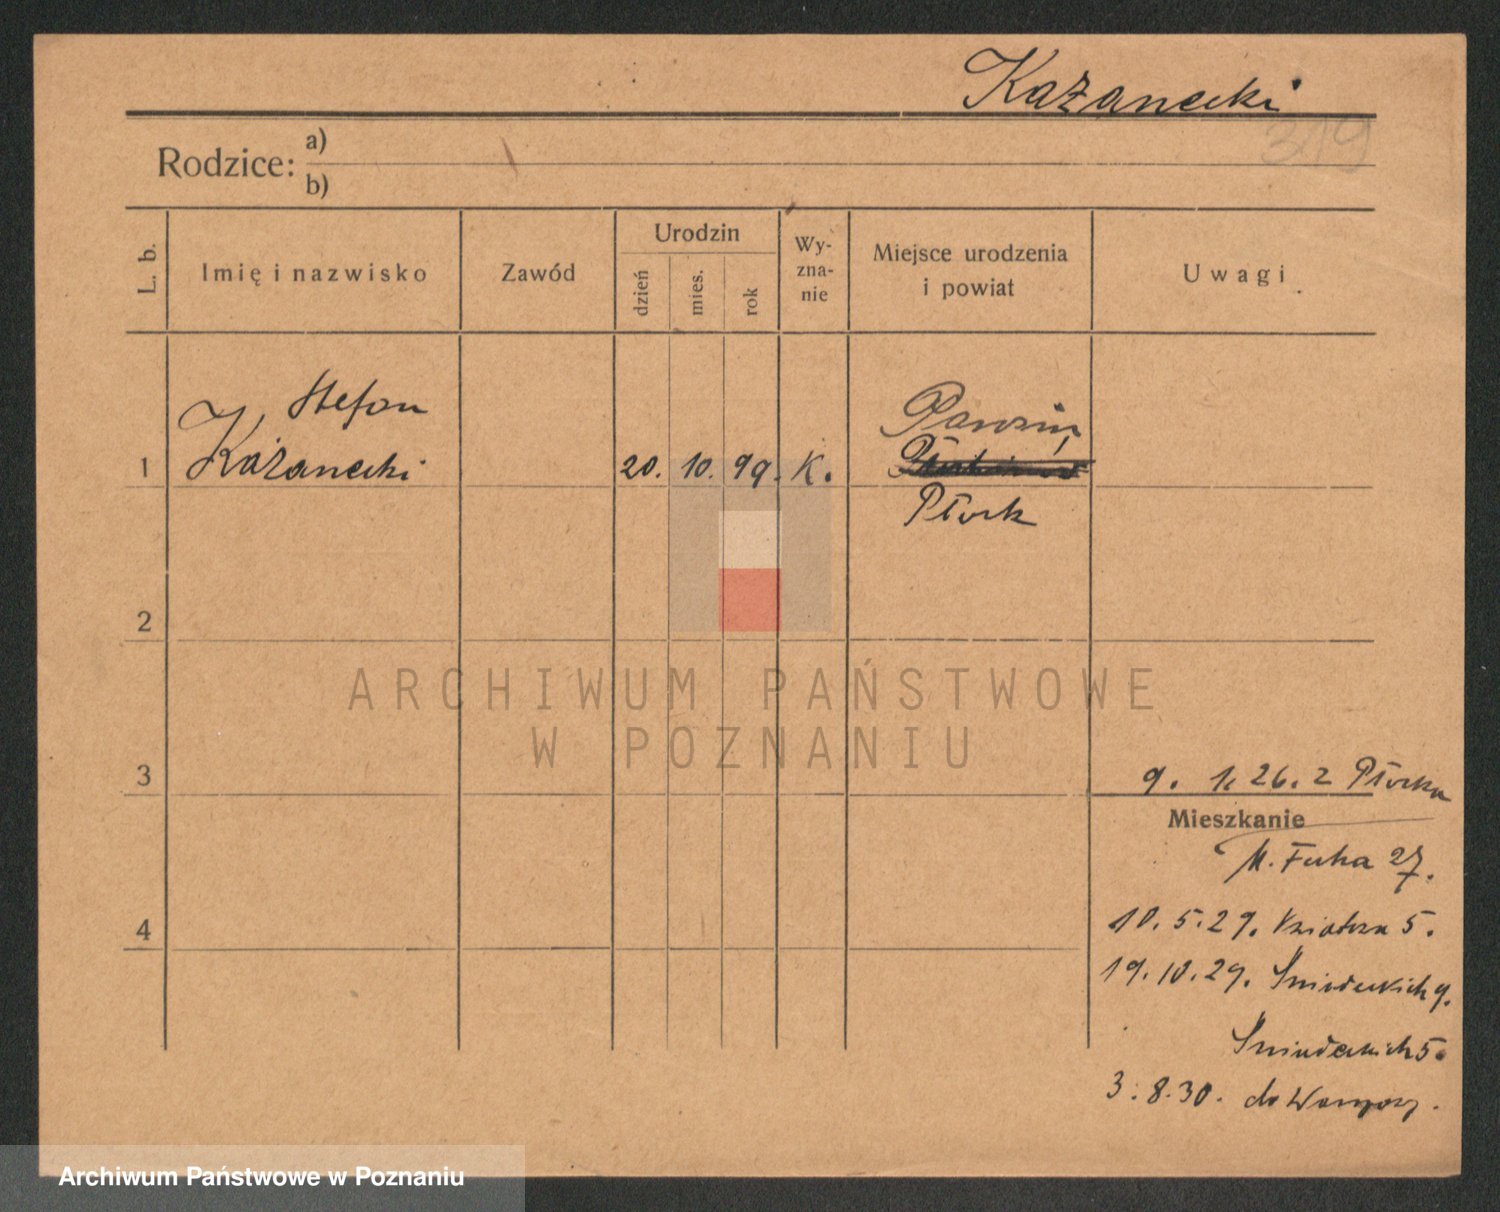 Każanecki
319
Rodzice: a)
b)
L. b.
Imię i nazwisko
Zawód
Urodzin
dzień
mies.
rok
Wy-
zna-
nie
Miejsce urodzenia
i powiat
Uwagi
Stefan
1 Każanecki 20. 10. 99. K.
Płock
2
ARCHIWUM PAŃSTWOWE
W POZNANIU
3
9. 1. 26. z Płocka
Mieszkanie
M. Focha 27.
4
10. 5. 29. 5.
19. 10. 29. Śniadeckich 9.
Śniadeckich 5.
3. 8. 30. do Warszawy.
Archiwum Państwowe w Poznaniu